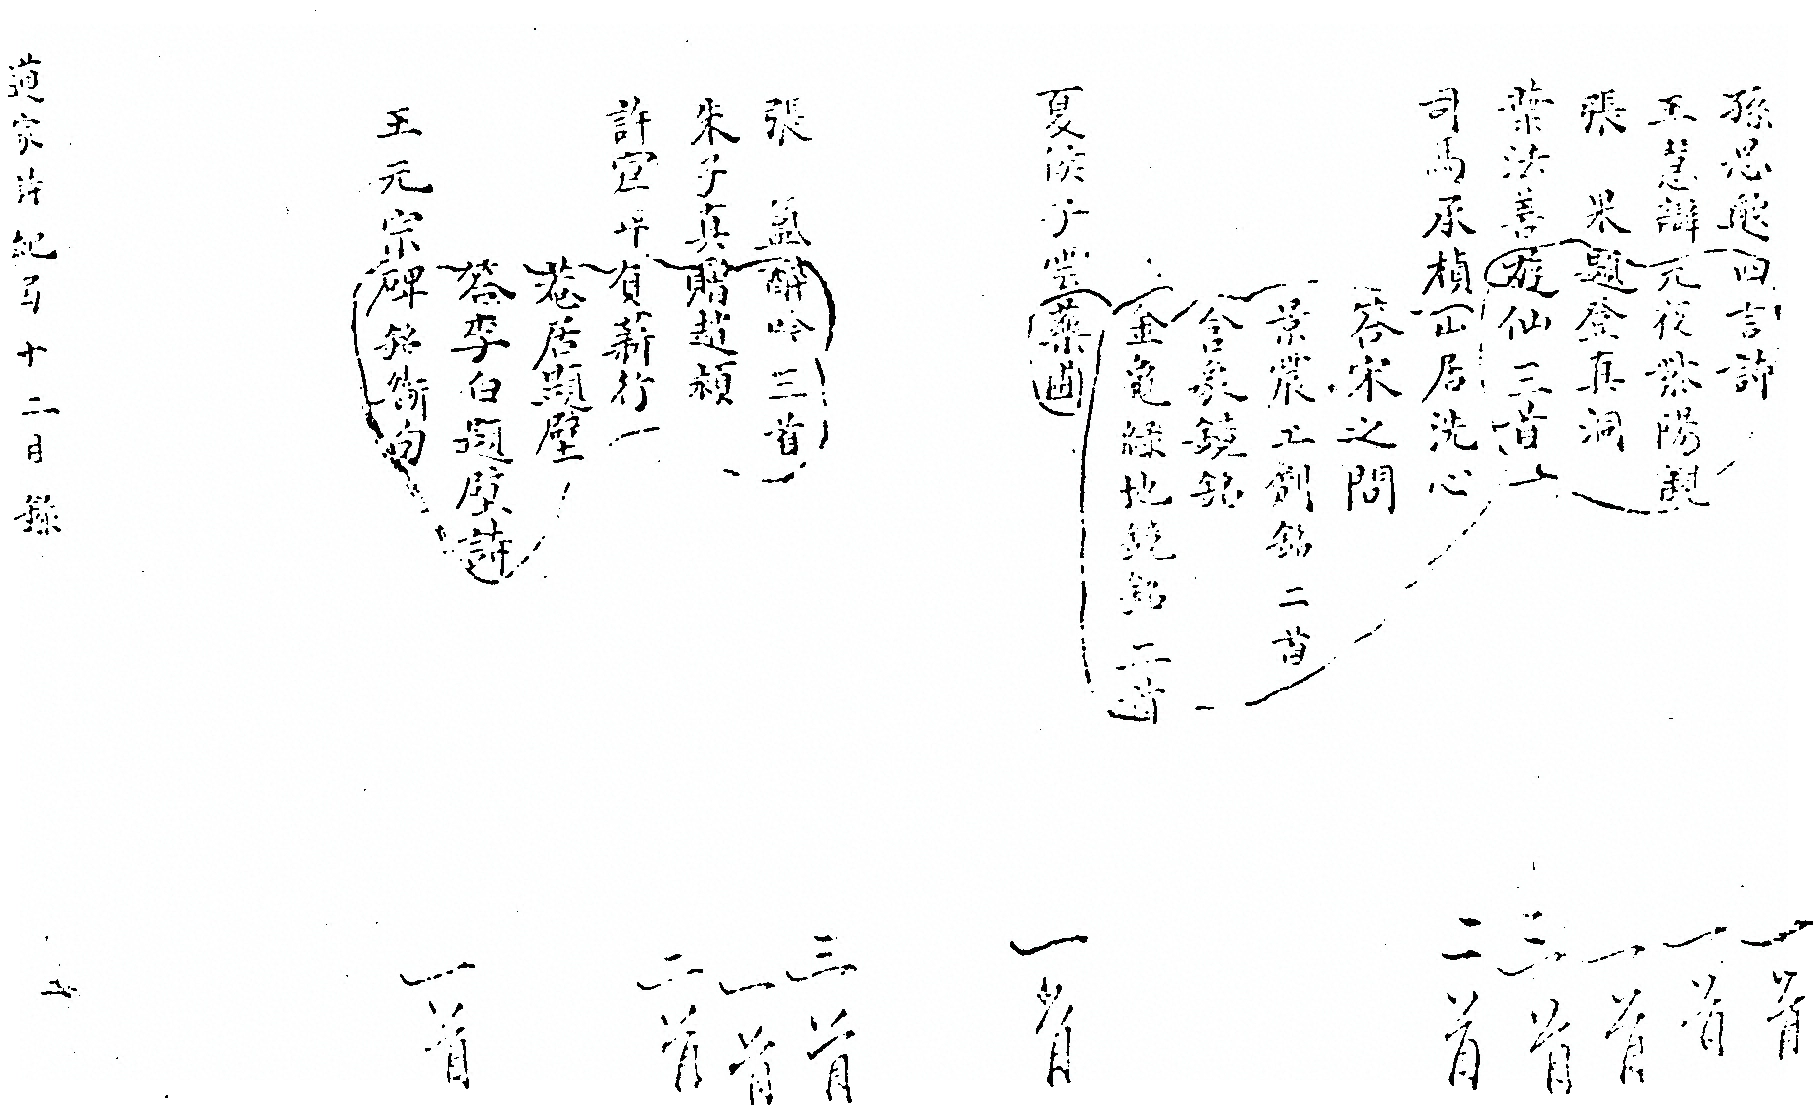 孫思邈四言詩 一首
王慧辯元夜懸陽觀 一首
張果題登真洞 一首
葉法善遊仙三首 三首
司馬承禎山居洗心 二首
答宋之問
景震工劍銘二首
含象鏡銘
金龜綠地鏡銘二首
夏侯子雲藥圃 一首
張氳醉吟三首 三首
朱子真贈趙穎 一首
許宣平負薪行 二首
菴居題壁
答李白題壁詩
王元宗碑銘 一首
道家詩紀 十二目錄